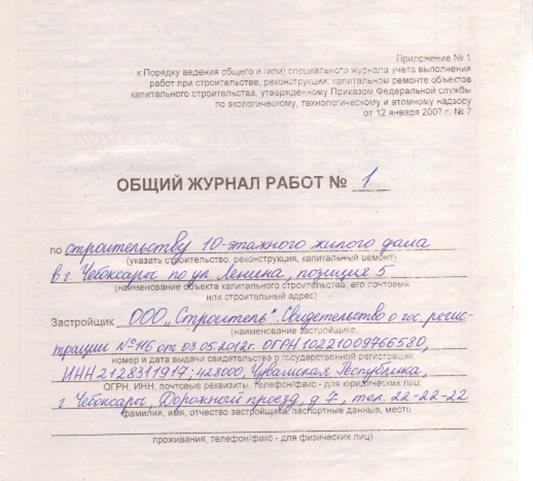 Приложение № 1
к Порядку ведения общего и (или) специального журнала учета выполнения
работ при строительстве, реконструкции, капитальном ремонте объектов
капитального строительства, утвержденному Приказом Федеральной службы
по экологическому, технологическому и атомному надзору
от 12 января 2007 г. № 7
ОБЩИЙ ЖУРНАЛ РАБОТ № 1
по строительству 10-этажного жилого дома
(указать строительство, реконструкция, капитальный ремонт)
в г Чебоксары по ул Ленина, позиция 5
(наименование объекта капитального строительства, его почтовый
или строительный адрес)
Застройщик ООО „Строитель". Свидетельство о гос. регис-
(наименование застройщика,
трации №НБ от 03.05.2012г. ОГРН 10221009766580,
номер и дата выдачи свидетельства о государственной регистрации,
ИНН 2128311917; 428000, Чувашская Республика,
ОГРН, ИНН, почтовые реквизиты, телефон/факс - для юридических лиц;
г Чебоксары, Дорожный проезд, д 7, тел. 22-22-22
фамилия, имя, отчество застройщика, паспортные данные, место
проживания, телефон/факс - для физических лиц)